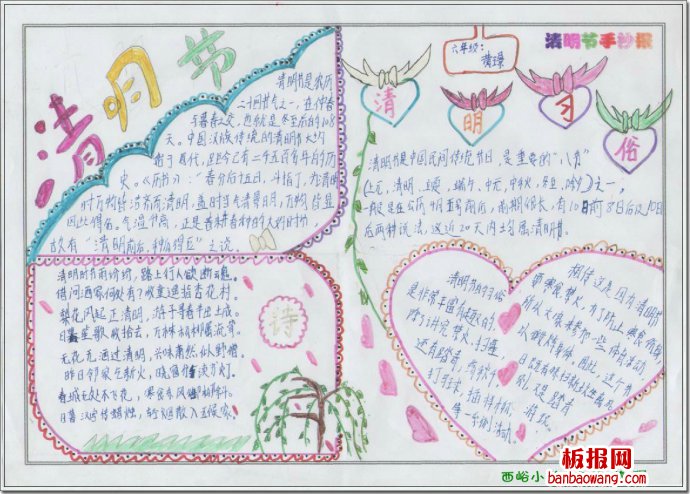 清明节
清明节手抄报
六年级:
清明节是农历
二十四节气之一，在仲春
与暮春之交，也就是冬至后的108
天。中国汉族传统的清明节大约
始于周代，距今已有二千五百多年的历
史。《历书》：“春分后十五日，斗指丁，为清明，
时万物皆洁齐而清明，盖时当气清景明，万物皆显
因此得名。气温升高，正是春耕春种的大好时节
故有“清明前后，种瓜得豆”之说。
清明习俗
清明节是中国民间传统节日，是重要的“八节”
(上元，清明，立夏，端午，中元，中秋，冬至，除夕)之一。
一般是在公历4月5号前后，节期很长，有10日前8日后及10日
后两种说法，这近20天内均属清明节。
清明时节雨纷纷，路上行人欲断魂。
借问酒家何处有？牧童遥指杏花村。
梨花风起正清明，游子寻春半出城。
日暮笙歌收拾去，万株杨柳属流莺。
无花无酒过清明，兴味萧然似野僧。
昨日邻家乞新火，晓窗分与读书灯。
春城无处不飞花，寒食东风御柳斜。
日暮汉宫传蜡烛，轻烟散入五侯家。
诗
清明节的习俗
是非常丰富有趣的
除了讲究禁火、扫墓，
还有踏青、荡秋千、
打球、插柳
等一系列活动。
相传这是因为清明节
要寒食禁火，为了防止寒食冷餐
伤身，所以大家来参加一些体育活动
以锻炼身体。因此，这个节
西峪小
板报网
banbaowang.com